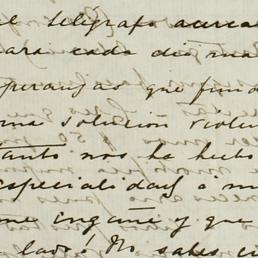 el telégrafo acerca
para cada dia ma
peranzas que fund
una solución viole
tanto nos ha hecho
especialidad á m
me engañe y que
lado! No sabes cu